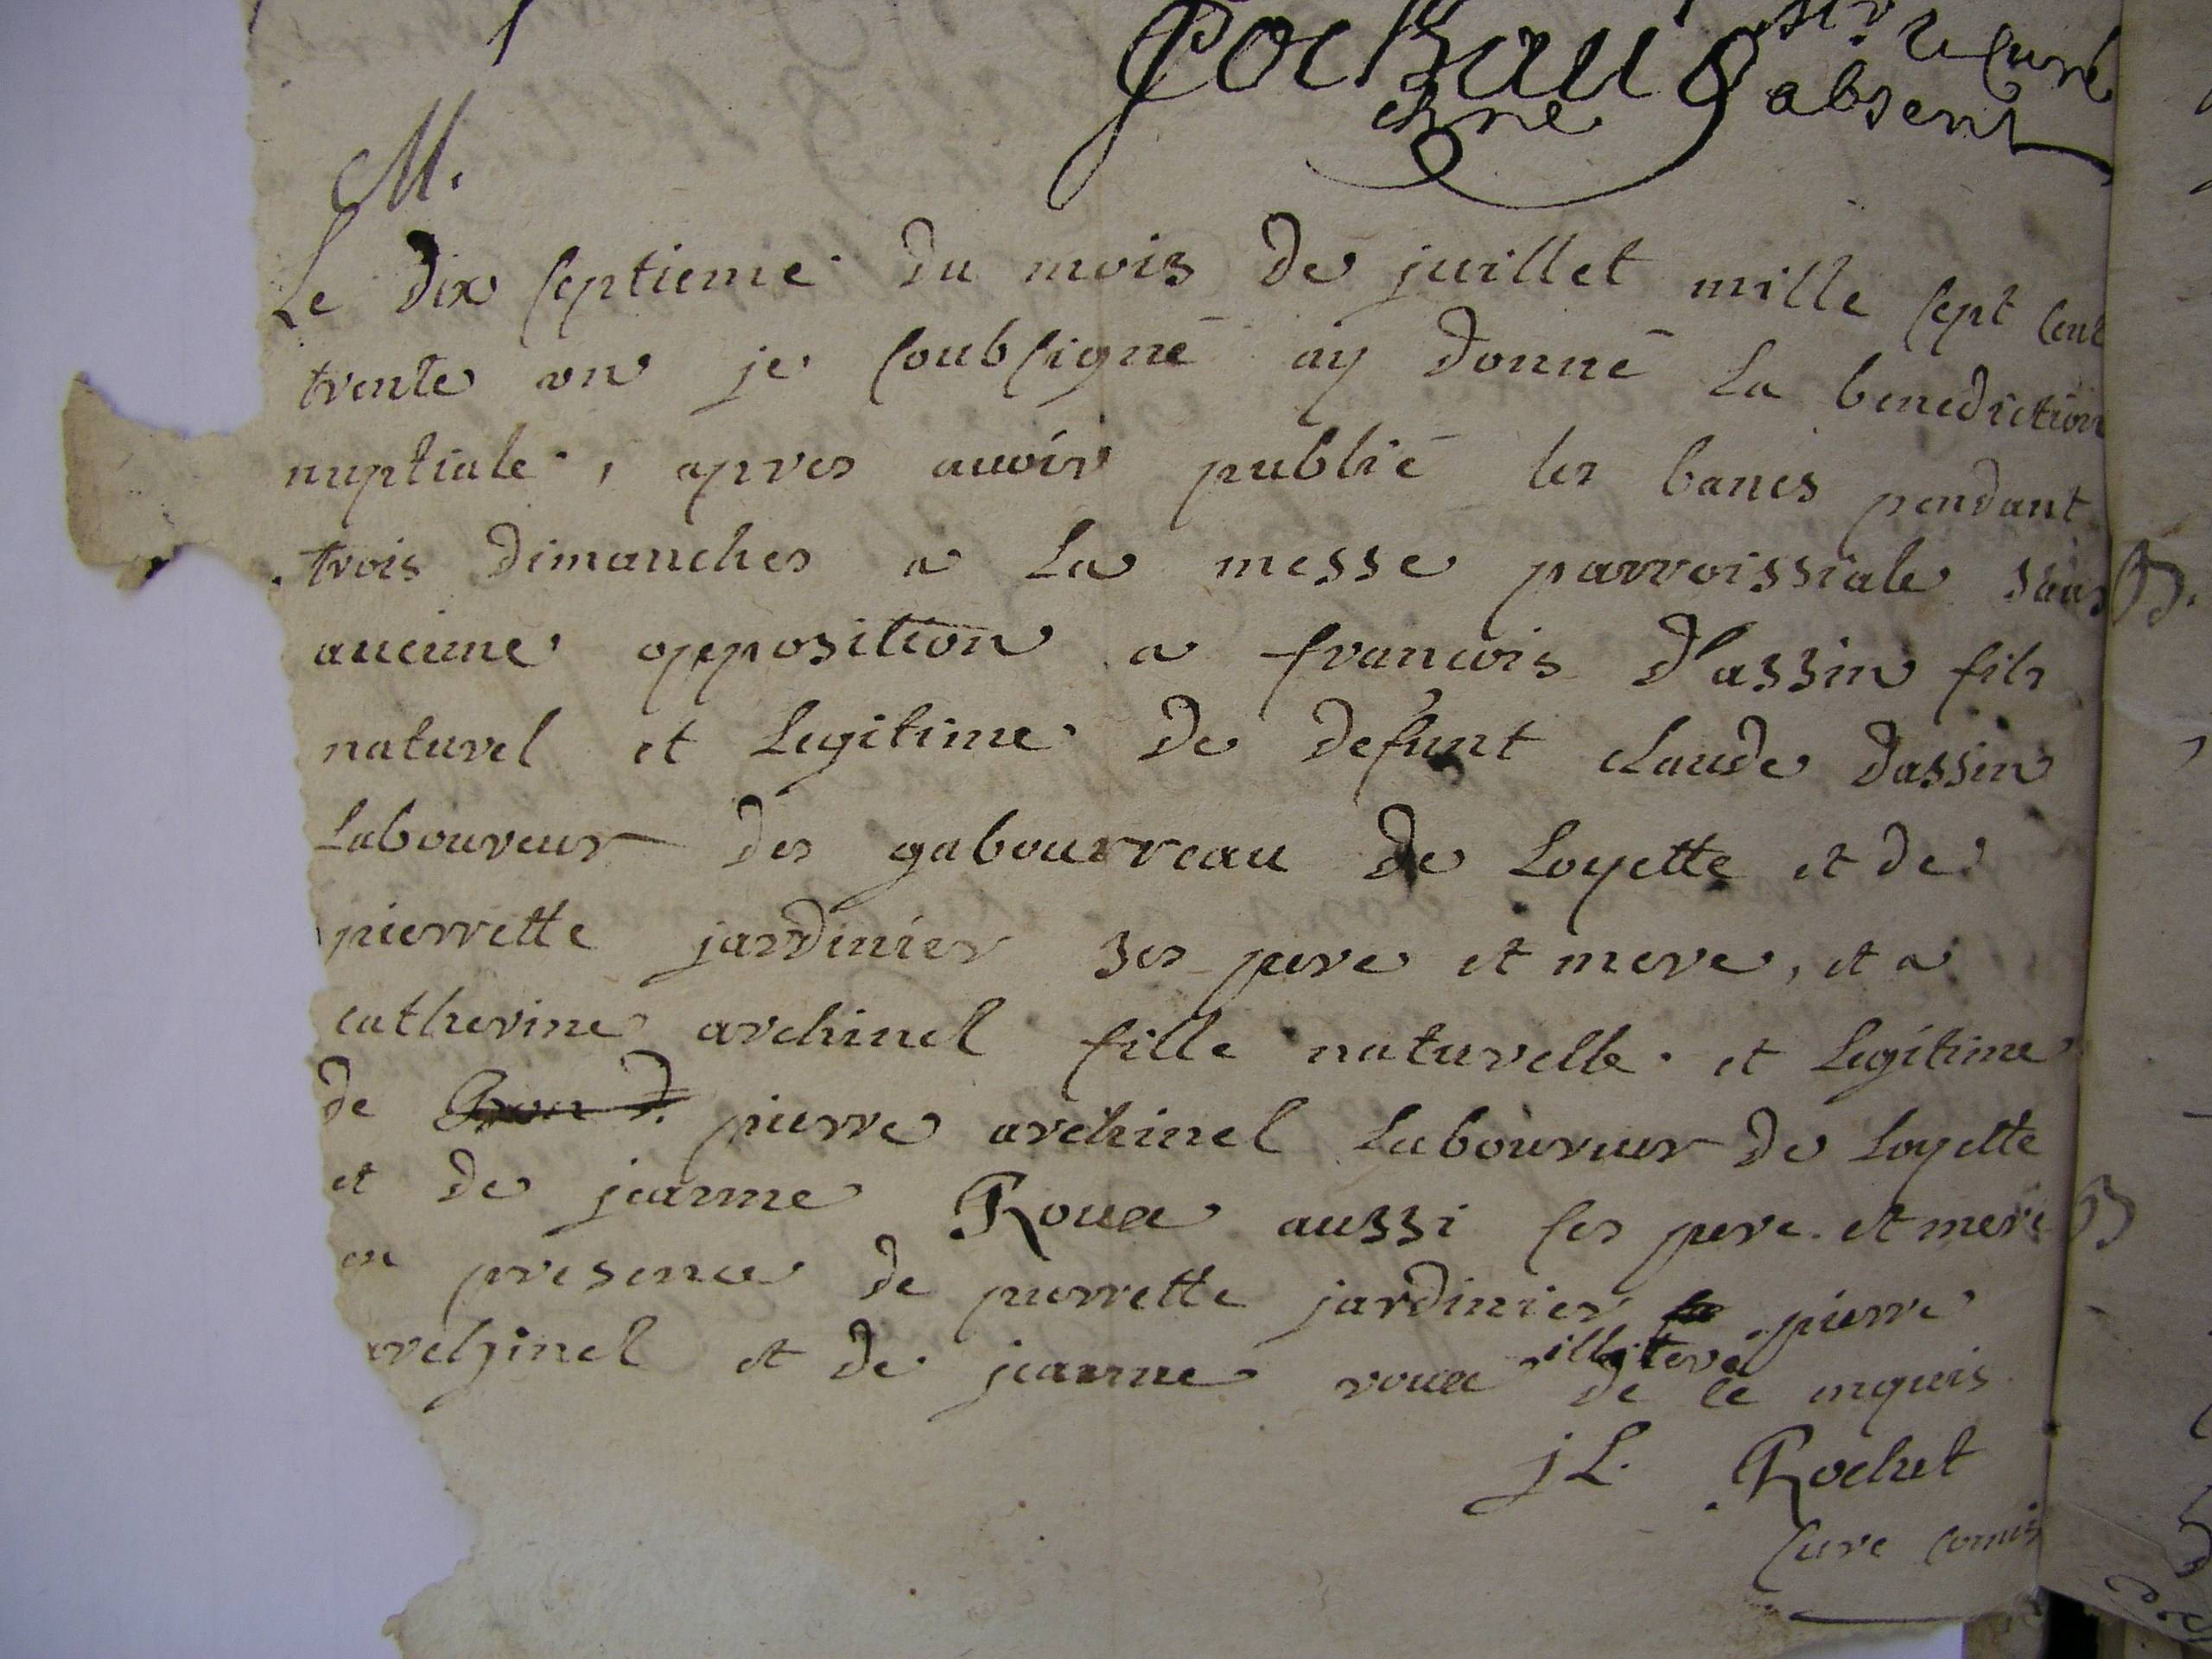 Mr. le curé
absent
M.
Le dix septieme du mois de juillet mille sept cent
trente un je soubsigné ay donné la benediction
nuptiale, apres avoir publié les bancs pendant
trois dimanches a La messe parroissiale sans
aucune opposition a francois d'assin fils
naturel et Legitime de defunt claude dassin
Laboureur des gabourreau de Loyette et de
pierrette jardinier ses pere et mere, et a
catherine archinel fille naturelle et Legitime
de pierre archinel Laboureur de Loyette
et de jeanne Roux aussi ses pere et mere
en presence de pierrette jardinier pierre
archinel et de jeanne roux illiteré de ce enquis
j L. Rochet
Curé comis